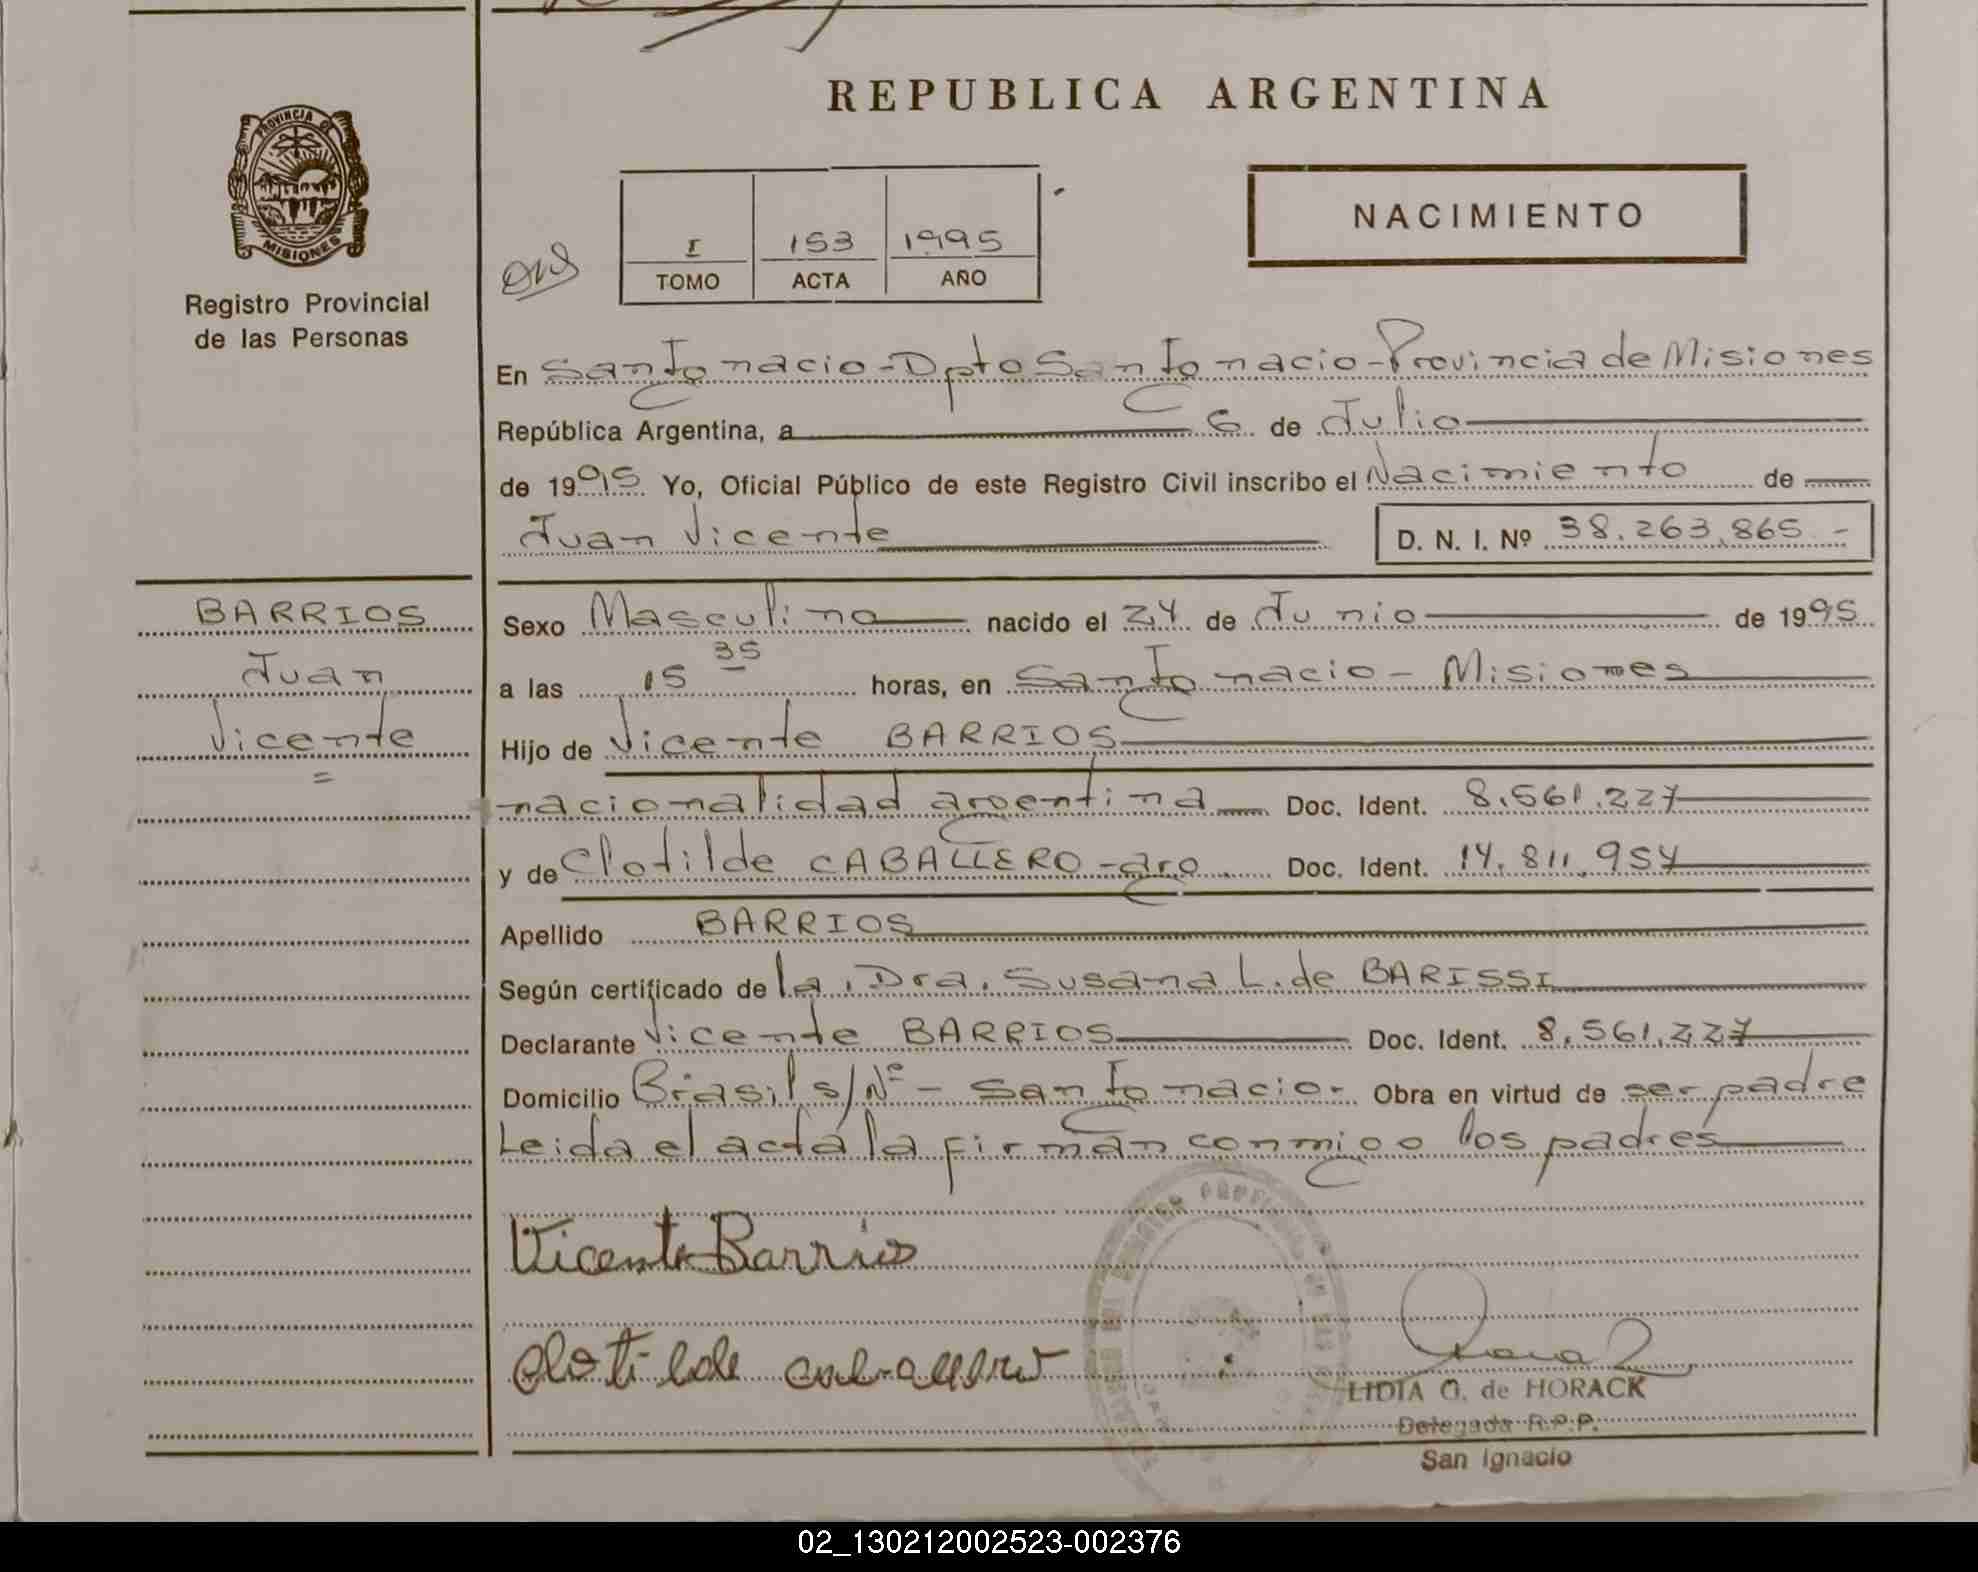 REPUBLICA ARGENTINA
PROVINCIA DE
MISIONES
Registro Provincial
de las Personas
NACIMIENTO
I 153 1995
TOMO ACTA AÑO
En San Ignacio - Dpto San Ignacio - Provincia de Misiones
República Argentina, a 6 de Julio
de 1995 Yo, Oficial Público de este Registro Civil inscribo el Nacimiento de
Juan Vicente D. N. I. Nº 38.263.865.-
BARRIOS
Juan
Vicente
=
Sexo Masculino nacido el 24 de Junio de 1995
a las 15 35 horas, en San Ignacio - Misiones
Hijo de Vicente BARRIOS
nacionalidad argentina Doc. Ident. 8.561.227
y de Clotilde CABALLERO - arg. Doc. Ident. 14.811.954
Apellido BARRIOS
Según certificado de la. Dra. Susana L. de BARISSI
Declarante Vicente BARRIOS Doc. Ident. 8.561.227
Domicilio Brasil s/Nº - San Ignacio - Obra en virtud de ser padre
Leida el acta la firman conmigo los padres
Vicente Barrios
Clotilde Caballero
LIDIA O. de HORACK
Delegada R.P.P.
San Ignacio
02_130212002523-002376